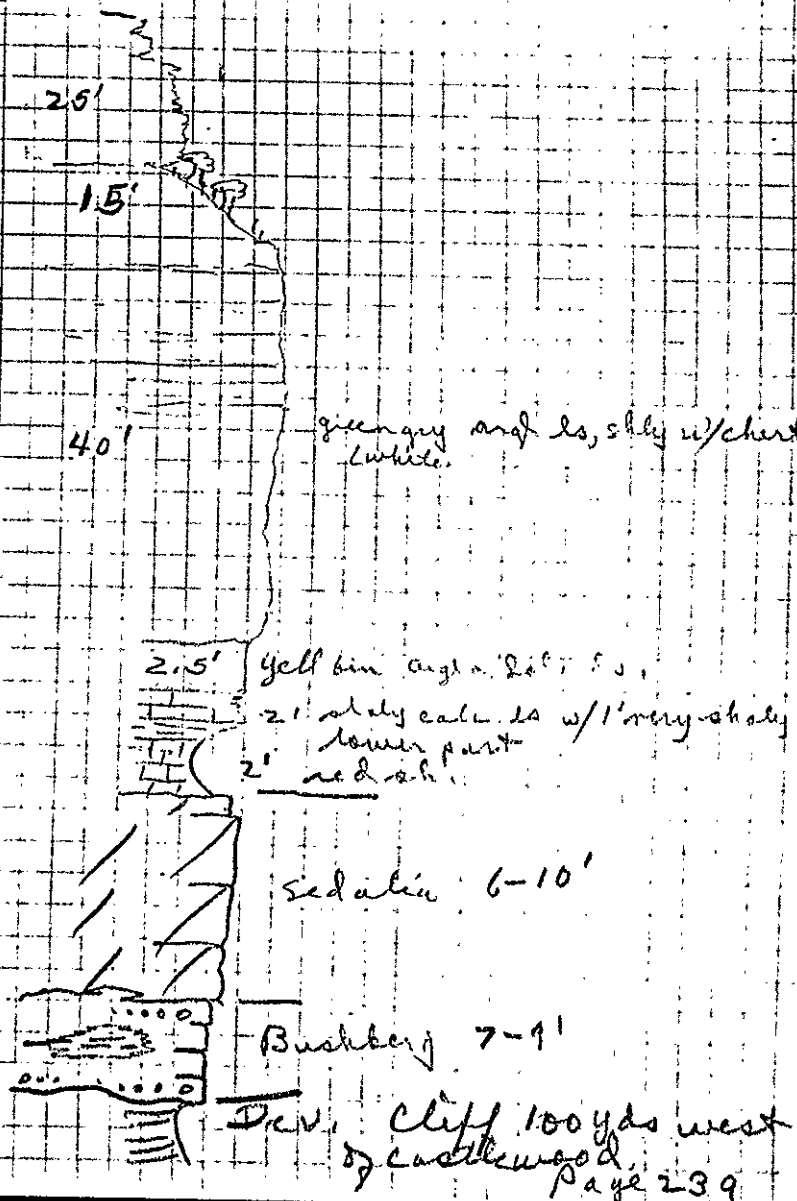 25'
15'
40'
green gry argl ls, shly w/chert
(white.
2.5' Yell brn argl
2' shaly calc ls w/1' very shaly
lower part
2' red sh.
Sedalia 6-10'
Bushberg 7-9'
Dev. Cliff 100 yds west
of Castlewood.
Page 239